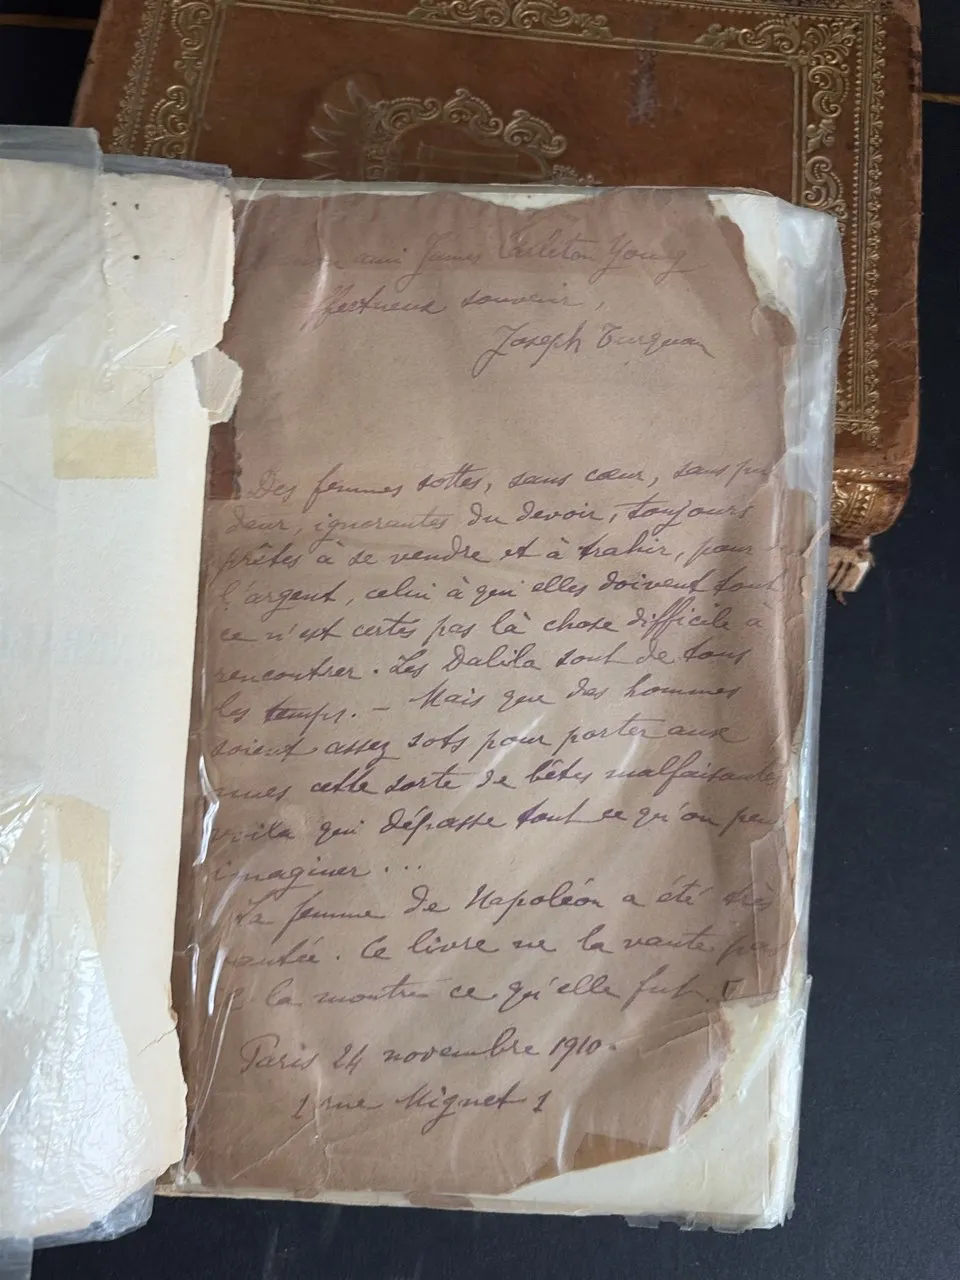 mon ami James Carleton Young
affectueux souvenir,
Joseph Turquan
Des femmes sottes, sans cœur, sans pu
deur, ignorantes du devoir, toujours
prêtes à se vendre et à trahir, pour
l'argent, celui à qui elles doivent tout
ce n'est certes pas là chose difficile à
rencontrer. Les Dalila sont de tous
les temps. — Mais que des hommes
soient assez sots pour porter aux
nues cette sorte de bêtes malfaisantes
voilà qui dépasse tout ce qu'on peu
imaginer...
La femme de Napoléon a été très
vantée. Ce livre ne la vante pas
la montre ce qu'elle fut.
Paris 24 novembre 1910.
1 rue Mignet 1